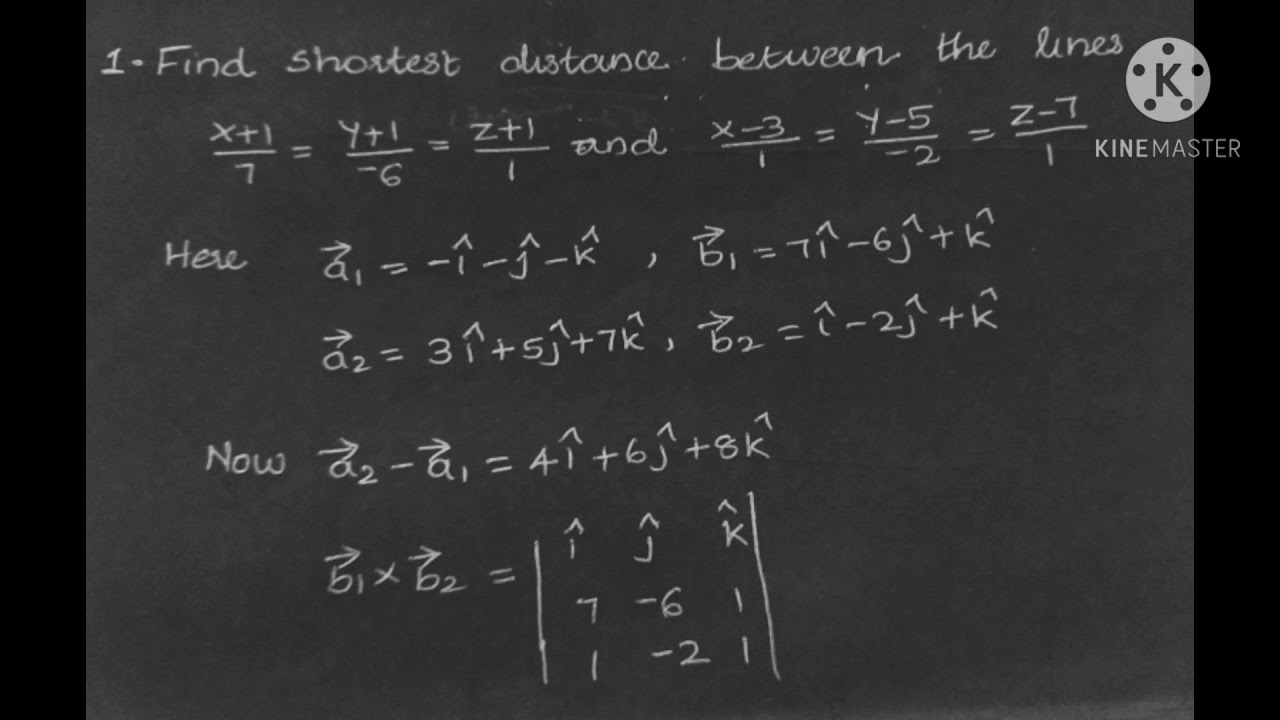 1. Find shortest distance between the lines
x+1/7 = y+1/-6 = z+1/1 and x-3/1 = y-5/-2 = z-7/1
K
KINEMASTER
Here a⃗₁ = -î-ĵ-k̂ , b⃗₁ = 7î-6ĵ+k̂
a⃗₂ = 3î+5ĵ+7k̂, b⃗₂ = î-2ĵ+k̂
Now a⃗₂-a⃗₁ = 4î+6ĵ+8k̂
b⃗₁×b⃗₂ = | î ĵ k̂ |
| 7 -6 1 |
| 1 -2 1 |